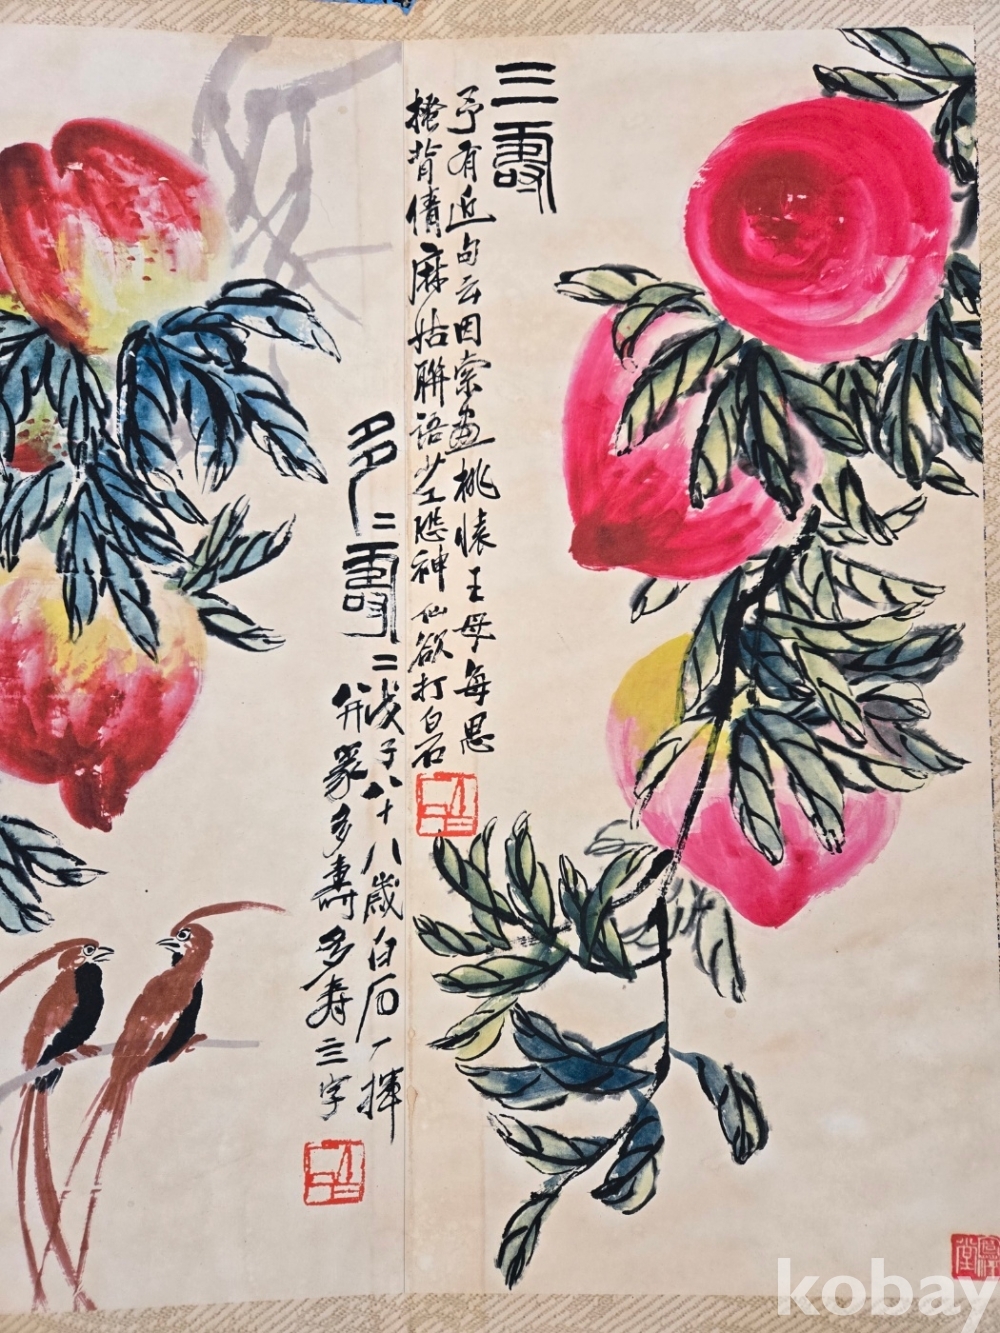 三壽
予有近句云因索畫桃懷王母每思
搔背倩麻姑聯語
神仙欲打白石
白石
多壽
戊子八十八歲白石一揮
并篆多壽多寿三字
白石
堂
kobay